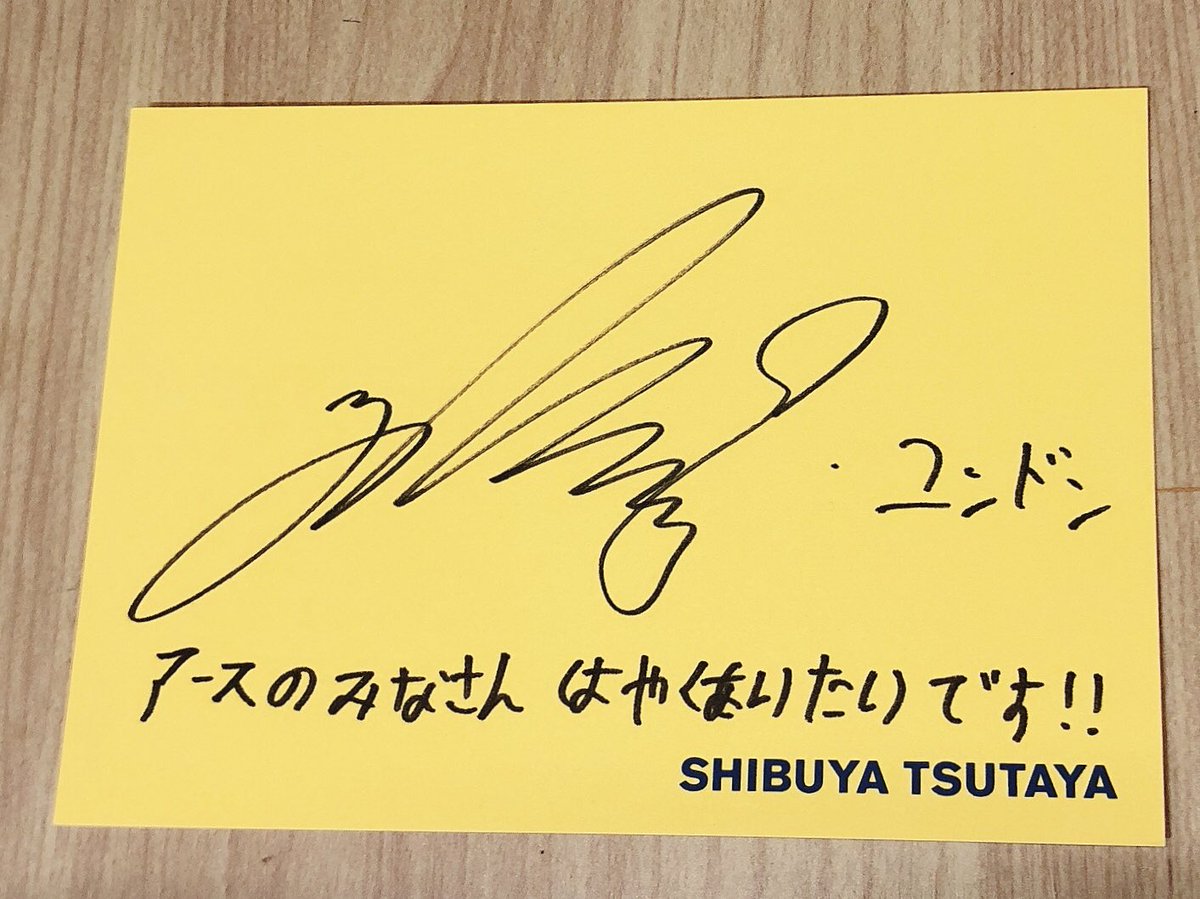 ユンドン
アースのみなさん はやくあいたいです!!
SHIBUYA TSUTAYA